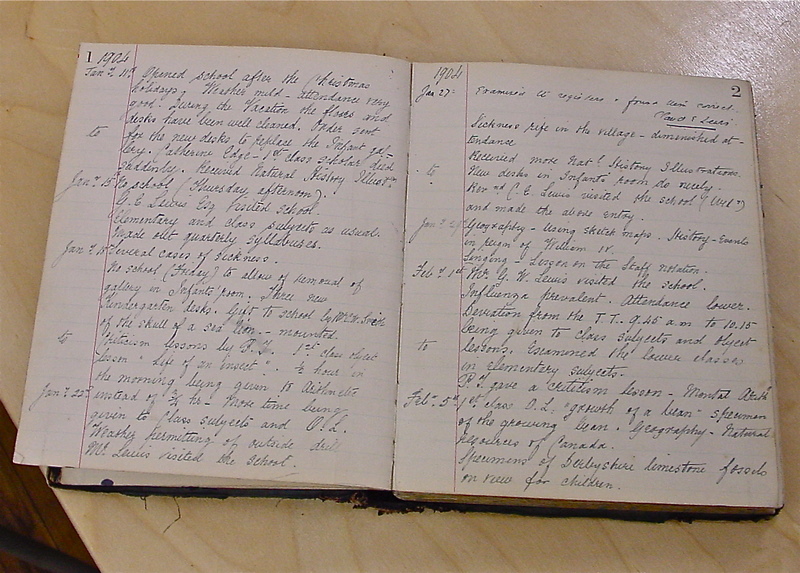 1 1904
Jan 11th Opened school after the Christmas
holidays. Weather mild - attendance very
good. During the Vacation the floors and
desks have been well cleaned. Order sent
to for the new desks to replace the Infant gal-
lery. Catherine Edge - 1st class scholar died
suddenly. Received Natural History Illustns
Jany 15 No school (Thursday afternoon).
G.E. Lewis Esq visited school.
Elementary and class subjects as usual.
Made out quarterly syllabuses.
Jany 18 Several cases of sickness.
No school (Friday) to allow of removal of
gallery in Infants' room. Three new
Kindergarten desks. Gift to school by
of the skull of a sea lion - mounted.
to Criticism lessons by P.T. 1st class object
lesson "Life of an insect". ½ hour in
the morning being given to Arithmetic
Jany 22nd instead of ¾ hr - More time being
given to class subjects and O.L.
Weather permitting of outside drill
Mr Lewis visited the school.
1904 2
Jan 27 Examined the registers & found them correct.
Lewis
Sickness rife in the village - diminished at-
tendance
Received more Natl History Illustrations.
to New desks in Infants' room so newly.
Revnd C.E. Lewis visited the school (Wed)
and made the above entry.
Jany 29 Geography - Using sketch maps. History - Events
in reign of William IV.
Singing - Lesson on the Staff notation.
Feby 1st Mr G. W. Lewis visited the school.
Influenza prevalent. Attendance lower.
Deviation from the T.T. 9.45 a.m to 10.15
being given to class subjects and object
to lessons. Examined the lower classes
in elementary subjects.
P.T. gave a criticism lesson - Mental Arith
Feby 5th 1st class O.L: "growth of a bean" specimen
of the growing bean. Geography - Natural
resources of Canada.
Specimens of Derbyshire limestone fossils
on view for children.